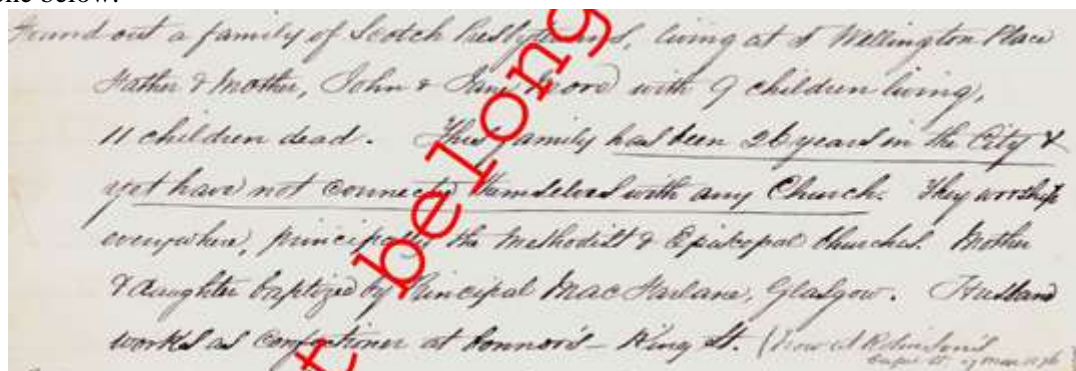 one below.
Found out a family of Scotch Presbyterians, living at 5 Wellington Place
Father & Mother, John & Jane Moore with 9 children living,
11 children dead. This family has been 26 years in the City &
yet have not connected themselves with any Church. They worship
everywhere, principally the Methodist & Episcopal Churches. Mother
& daughter baptized by Principal MacFarlane, Glasgow. Husband
works as Confectioner at Connor's - King St. (now at Robinson's
17 Mar 1876
belong